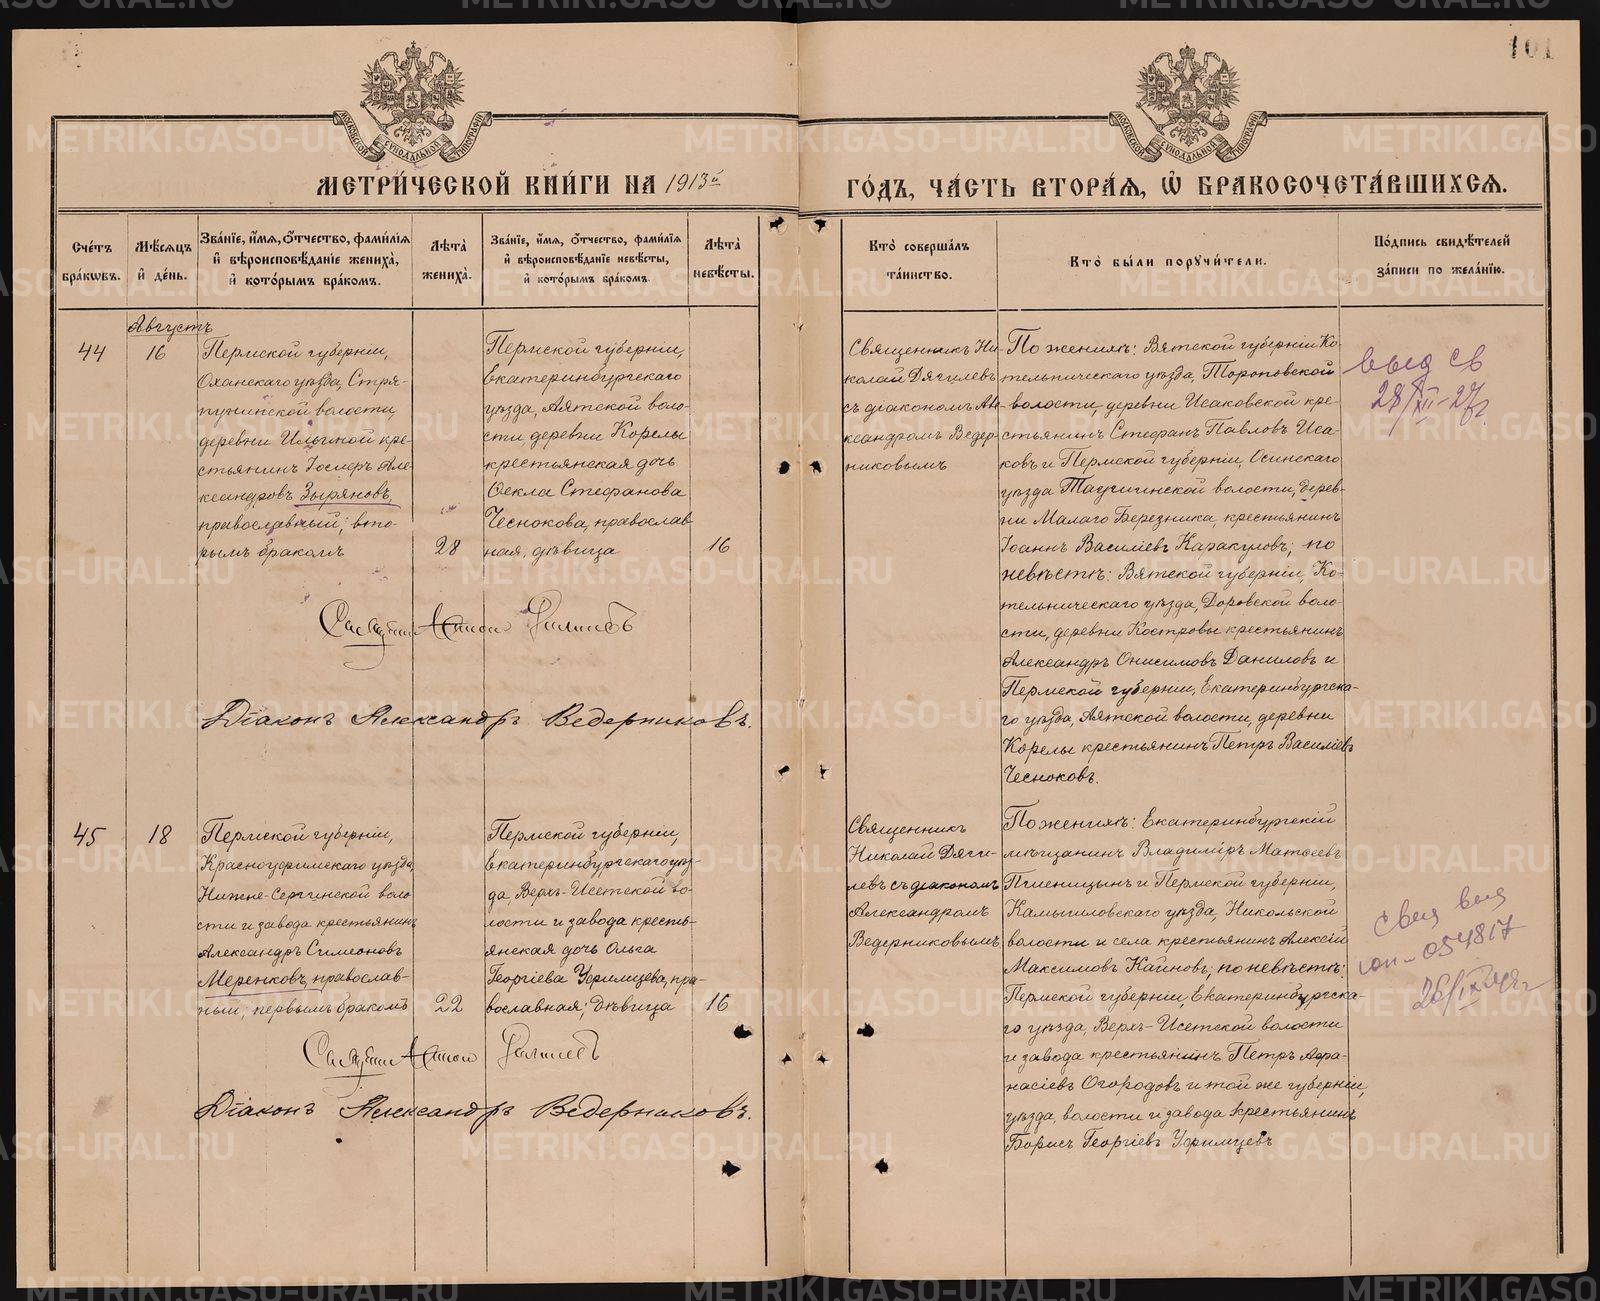 101
МЕТРИ́ЧЕСКОЙ КНИ́ГИ НА 1913й
ГО́ДЪ, ЧА́СТЬ ВТОРА́Я, Ѡ҆ БРАКОСОЧЕТА́ВШИХСЯ.
Сче́тъ
бра́кѡвъ.
Мѣ́сяцъ
и҆ де́нь.
Зва́нїе, и҆́мя, ѻ҆́тчество, фами́лїя
и҆ вѣроисповѣ́данїе жениха̀,
и҆ кото́рымъ бра́комъ.
Лѣ́та
жениха̀.
Зва́нїе, и҆́мя, ѻ҆́тчество, фами́лїя
и҆ вѣроисповѣ́данїе невѣ́сты,
и҆ кото́рымъ бра́комъ.
Лѣ́та
невѣ́сты.
Кто̀ соверша́лъ
та́инство.
Кто̀ бы́ли поручи́тели.
По́дпись свидѣ́телей
за́писи по жела́нїю.
Августъ
44
16
Пермской губерніи,
Оханскаго уѣзда, Стря-
пунинской волости,
деревни Ильиной кре-
стьянинъ Іосифъ Але-
ксандровъ Зыряновъ,
православный; вто-
рымъ бракомъ
28
Пермской губерніи,
Екатеринбургскаго
уѣзда, Аятской воло-
сти деревни Корелы
крестьянская дочь
Ѳекла Стефанова
Чеснокова, православ
ная, дѣвица
16
Діаконъ Александръ Ведерниковъ.
Священникъ Ни-
колай Дягилевъ
съ діакономъ Але-
ксандромъ Ведер-
никовымъ
По женихѣ: Вятской губерніи Ко-
тельническаго уѣзда, Тороповской
волости, деревни Исаковской кре-
стьянинъ Стефанъ Павловъ Иса-
ковъ и Пермской губерніи, Осинскаго
уѣзда волости, дерев-
ни Малаго Березника, крестьянинъ
Іоаннъ Василіевъ Каракуловъ; по
невѣстѣ: Вятской губерніи, Ко-
тельническаго уѣзда, Доровской воло-
сти, деревни Костровы крестьянинъ
Александръ Онисимовъ Даниловъ и
Пермской губерніи, Екатеринбургска-
го уѣзда, Аятской волости, деревни
Корелы крестьянинъ Петръ Василіевъ
Чесноковъ.
выд св
28/XII-27г.
45
18
Пермской губерніи,
Красноуфимскаго уѣзда,
Нижне-Сергинской воло
сти и завода крестьянинъ
Александръ Симеоновъ
Меренковъ, православ-
ный; первымъ бракомъ
22
Пермской губерніи,
Екатеринбургскаго уѣз-
да, Верхъ-Исетской во-
лости и завода кресть-
янская дочь Ольга
Георгіева Уфимцева, пра-
вославная; дѣвица
16
Діаконъ Александръ Ведерниковъ.
Священникъ
Николай Дяги-
левъ съ діакономъ
Александромъ
Ведерниковымъ
По женихѣ: Екатеринбургскій
мѣщанинъ Владиміръ Матѳеевъ
Пшеницынъ и Пермской губерніи,
Камышловскаго уѣзда, Никольской
волости и села крестьянинъ Алексій
Максимовъ Каиновъ; по невѣстѣ:
Пермской губерніи, Екатеринбургска-
го уѣзда, Верхъ-Исетской волости
и завода крестьянинъ Петръ Аѳа-
насіевъ Огородовъ и той же губерніи,
уѣзда, волости и завода крестьянинъ
Борисъ Георгіевъ Уфимцевъ
054817
METRIKI.GASO-URAL.RU